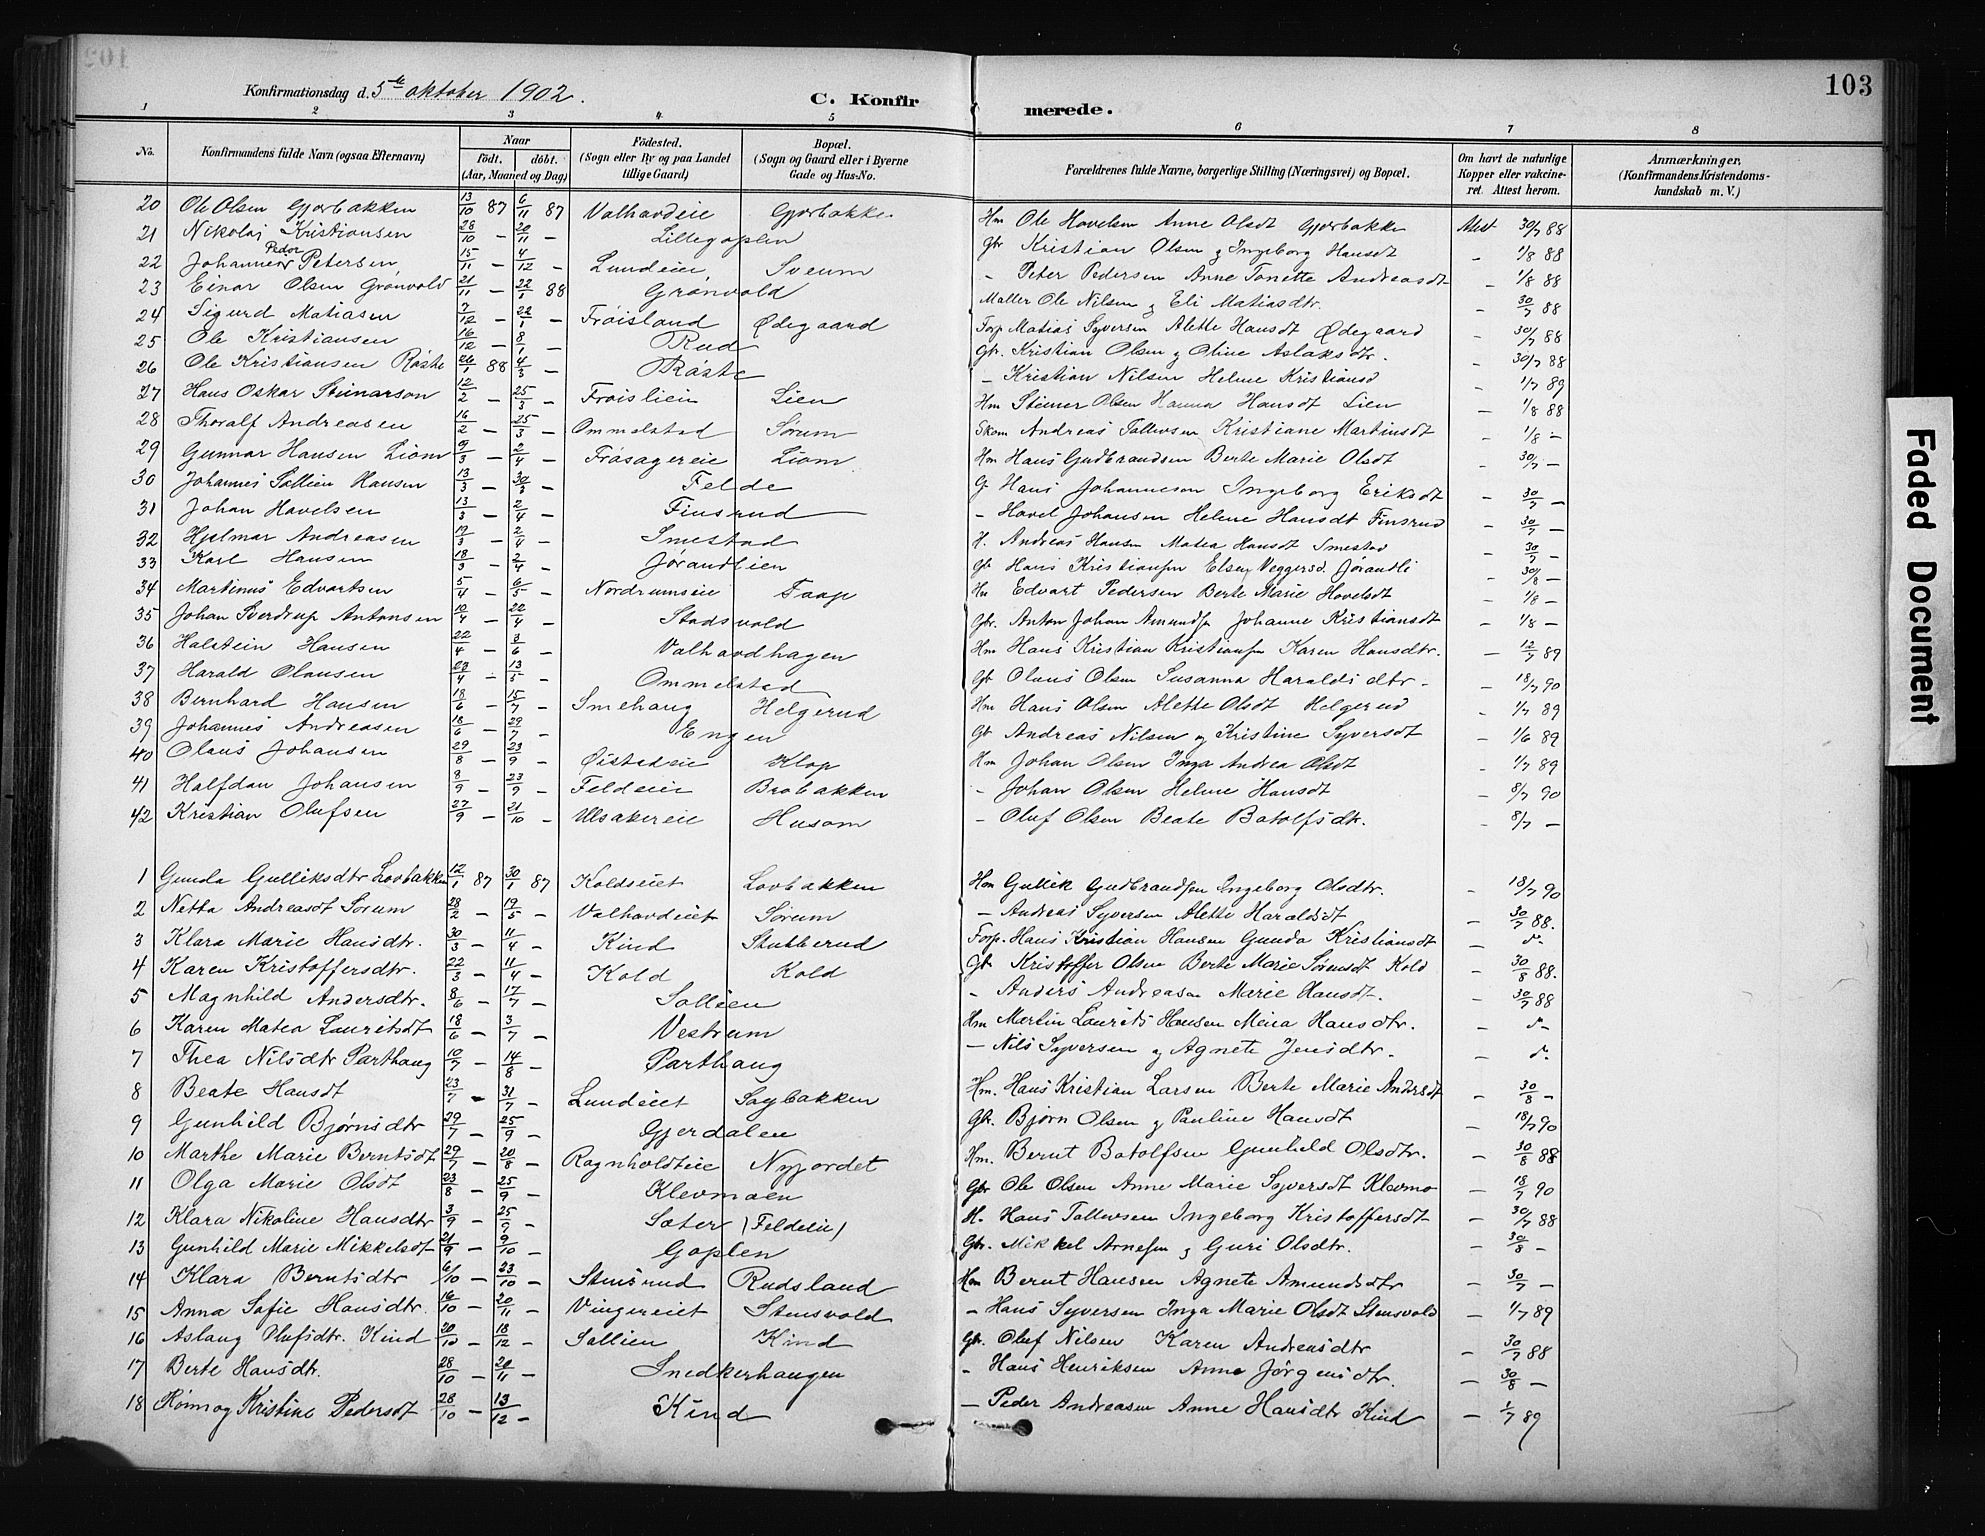 103
Konfirmationsdag d. 5te oktober 1902.
C. Konfirmerede.
1 2 3 4 5 6 7 8
No. Konfirmandens fulde Navn (ogsaa Efternavn) Naar födt. döbt. (Aar, Maaned og Dag) Födested. (Sogn eller By og paa Landet tillige Gaard) Bopæl. (Sogn og Gaard eller i Byerne Gade og Hus-No. Forældrenes fulde Navne, borgerlige Stilling (Næringsvei) og Bopæl. Om havt de naturlige Kopper eller vakcineret. Attest herom. Anmærkninger, (Konfirmandens Kristendomskundskab m. V.)
20 Ole Olsen Gjørbakken 13/10 87 6/11 87 Valhovdeie Gjørbakke Hm Ole Hovelsen Anne Olsdt Gjørbakke Att 30/7 88
21 Nikolai Kristiansen 28/10 - 20/11 - Lillegoplen Gbr Kristian Olsen & Ingeborg Hansdt - 1/8 88
22 Johannes Peder Petersen 15/11 - 4/12 - Lundeie Sveum - Peter Pedersen Anne Tonette Andreasdt - 1/8 88
23 Einar Olsen Grönvold 21/11 - 22/1 88 Grönvold Møller Ole Nilsen & Eli Matiasdtr. - 30/7 88
24 Sigurd Matiasen 7/12 - 22/1 - Fröisland Ødegaard Forp Matias Syversen Alette Hansdt Ødegaard - 30/7 88
25 Ole Kristiansen 16/12 - 8/1 - Rud Gbr. Kristian Olsen & Oline Aslaksdtr. - 30/7 88
26 Ole Kristiansen Röste 26/1 88 4/3 - Röste - Kristian Nilsen Helene Kristiansd - 1/7 89
27 Hans Oskar Steinarson 12/2 - 25/3 - Fröislien Lien Hm Steiner Olsen Hanna Hansdt Lien - 1/8 88
28 Thoralf Andreasen 16/2 - 25/3 - Ommelstad Sørum Skom Andreas Tollevsen Kristiane Martinsdt - 1/8 -
29 Gunnar Hansen Liom 9/3 - 2/4 - Frösagereie Liom Hm Hans Gudbrandsen Berte Marie Olsdt - 30/7 -
30 Johannes Sollien Hansen 13/3 - 30/3 - Felde G Hans Johannesen Ingeborg Eriksdt - 30/7 -
31 Johan Hovelsen 13/3 - 2/4 - Finsrud - Hovel Johansen Helene Hansdt Finsrud - 30/7 -
32 Hjalmar Andreasen 17/3 - 2/4 - Smestad H. Andreas Hansen Matea Hansdt Smestad - 30/7 -
33 Karl Hansen 18/3 - 2/4 - Jørandlien Gb Hans Kristiansen Elsey Veggersd. Jørandli - 30/8 -
34 Martinus Edvartsen 5/4 - 6/5 - Nordrumseie Faap Hm Edvart Pedersen Berte Marie Hovelsdt - 1/8 -
35 Johan Sverdrup Antonsen 10/4 - 22/4 - Stadsvold Gbr. Anton Johan Amundsen Johanne Kristiansdt - 1/8 -
36 Halstein Hansen 22/4 - 3/6 - Valhovdhagen Hm Hans Kristian Kristiansen Karen Hansdtr. - 12/7 89
37 Harald Olausen 23/4 - 13/5 - Ommelstad Gb Olaus Olsen Susanna Haraldsdtr - - 18/7 90
38 Bernhard Hansen 18/6 - 15/7 - Smehaug Helgerud Hm Hans Olsen Alette Olsdt Helgerud - 1/7 89
39 Johannes Andreasen 18/6 - 29/7 - Engen Gb Andreas Nilsen og Kristine Syversdt - 1/6 89
40 Olaus Johansen 29/8 - 23/9 - Øistadeie Klop Hm Johan Olsen Inga Andrea Olsdt - 1/7 89
41 Halfdan Johansen 8/9 - 23/9 - Feldeie Brobakken - Johan Olsen Helene Hansdt - 8/7 90
42 Kristian Olufsen 27/9 - 21/10 - Ulsakereie Husom - Oluf Olsen Beate Botolfsdtr. - 8/7 -
1 Gunda Gulliksdtr Lovbakken 12/1 87 30/1 87 Koldseiet Lovbakken Hm Gullik Gudbrandsen Ingeborg Olsdtr. - 18/7 90
2 Netta Andreasdt Sörum 28/2 - 19/5 - Valhovdeiet Sørum - Andreas Syversen Alette Haraldsdt - 30/7 88.
3 Klara Marie Hansdtr. 30/3 - 11/4 - Kind Stubberud Forp. Hans Kristian Hansen Gunda Kristiansdt -
4 Karen Kristoffersdtr. 22/3 - 11/4 - Kold Kold Gb Kristoffer Olsen Berte Marie Sørensdt Kold - 30/8 88.
5 Magnhild Andersdtr. 8/6 - 17/7 - Sollien - Anders Andreasen Marie Hansdt. - 30/7 88
6 Karen Matea Lauritsdt 18/6 - 3/7 - Vestrum Hm Martin Laurits Hansen Mina Hansdtr. -
7 Thea Nilsdtr Parthaug 10/7 - 14/8 - Parthaug - Nils Syversen & Agnete Jensdtr. -
8 Beate Hansdt 23/7 - 31/7 - Lundeiet Sagbakken Hm. Hans Kristian Larsen Berte Marie Andersdt - 30/8 -
9 Gunhild Bjørnsdtr 29/7 - 25/9 - Gjerdalen Gb. Bjørn Olsen & Pauline Hansdt - 18/7 90
10 Marthe Marie Berntsdt 29/7 - 20/8 - Ragnholdteie Nyjordet Hm. Bernt Botolfsen Gunhild Olsdtr. - 30/8 88
11 Olga Marie Olsdt 23/8 - 25/9 - Klevmoen Gbr Ole Olsen Anne Marie Syversdt Klevmo - 18/7 90
12 Klara Nikoline Hansdtr 3/9 - 25/9 - Sæter (Feldeie) H. Hans Tollevsen Ingeborg Kristoffersdt - 30/7 88
13 Gunhild Marie Mikkelsdt 21/9 - 9/10 - Goplen Gbr. Mikkel Arnesen & Guri Olsdtr. - 30/8 -
14 Klara Berntsdtr 6/10 - 23/10 - Stensrud Rudsland Hm Bernt Hansen Agnete Amundsdtr - 30/7 -
15 Anna Sofie Hansdtr. 16/10 - 20/11 - Vingereiet Stensvold - Hans Syversen Inga Marie Olsdt Stensvold - 1/7 89
16 Aslaug Olufsdtr. Kind 20/10 - 18/12 - Sollien Kind Gbr. Oluf Nilsen Karen Andreasdtr - 30/7 88
17 Berte Hansdtr. 28/10 - 20/11 - Snedkerhaugen - Hans Henriksen Anne Jörgensdtr. - 30/8 -
18 Rönnog Kristine Pedersdt 28/10 - 13/12 - Kind - Peder Andreasen Anne Hansdtr Kind - 1/7 89
Faded Document